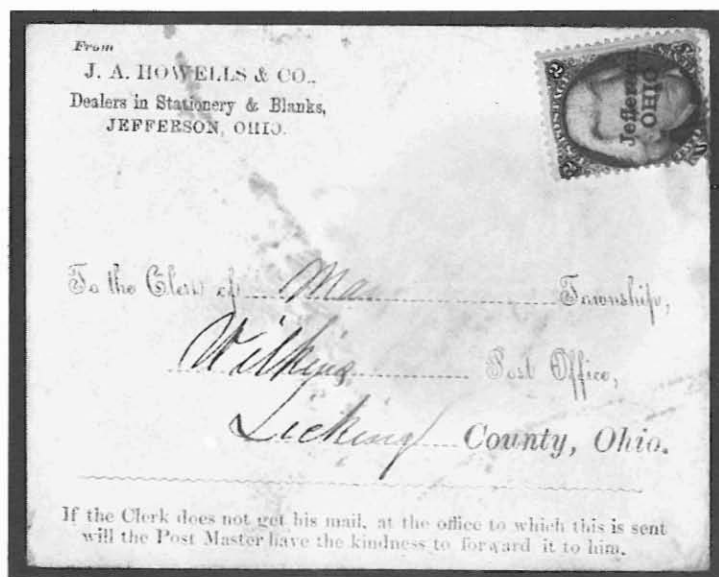 From
J. A. HOWELLS & CO.,
Dealers in Stationery & Blanks,
JEFFERSON, OHIO.
Jefferson
OHIO
To the Clerk of Township,
Wilkins Post Office,
Licking County, Ohio.
If the Clerk does not get his mail, at the office to which this is sent
will the Post Master have the kindness to forward it to him.